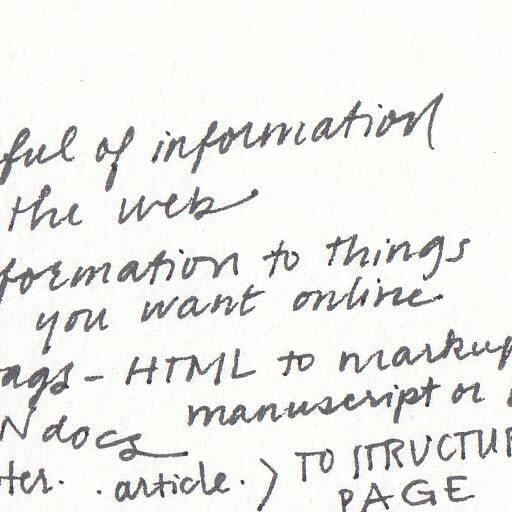 ful of information
the web
formation to things
you want online.
ags - HTML to markup
manuscript or
N docs
ter. . article. > TO STRUCTUR
PAGE